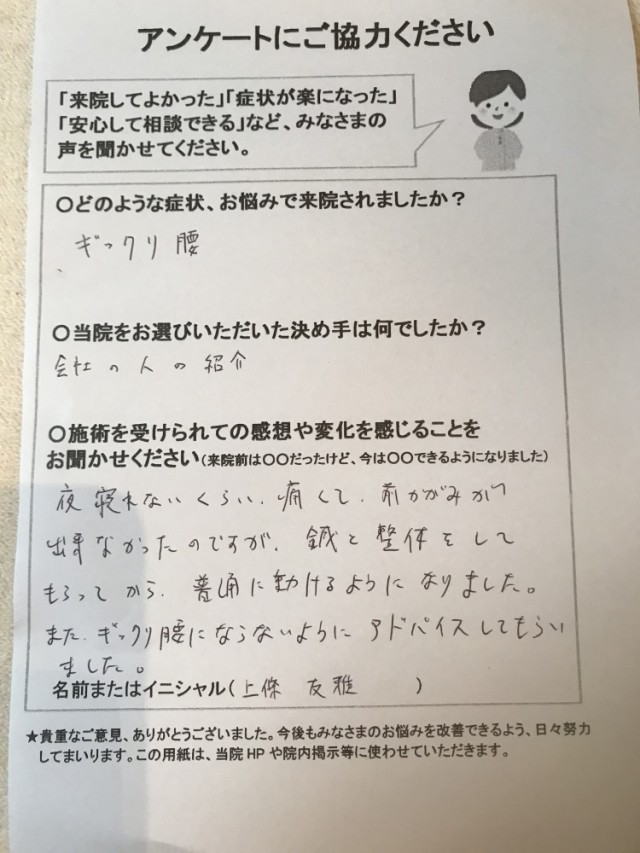 アンケートにご協力ください
「来院してよかった」「症状が楽になった」
「安心して相談できる」など、みなさまの
声を聞かせてください。
〇どのような症状、お悩みで来院されましたか？
ギックリ腰
〇当院をお選びいただいた決め手は何でしたか？
会社の人の紹介
〇施術を受けられての感想や変化を感じることを
お聞かせください(来院前は〇〇だったけど、今は〇〇できるようになりました)
夜寝れないくらい、痛くて、前かがみが
出来なかったのですが、鍼と整体をして
もらってから、普通に動けるようになりました。
また、ギックリ腰にならないようにアドバイスしてもらい
ました。
名前またはイニシャル(上條 友雅 )
★貴重なご意見、ありがとうございました。今後もみなさまのお悩みを改善できるよう、日々努力
してまいります。この用紙は、当院HPや院内掲示等に使わせていただきます。